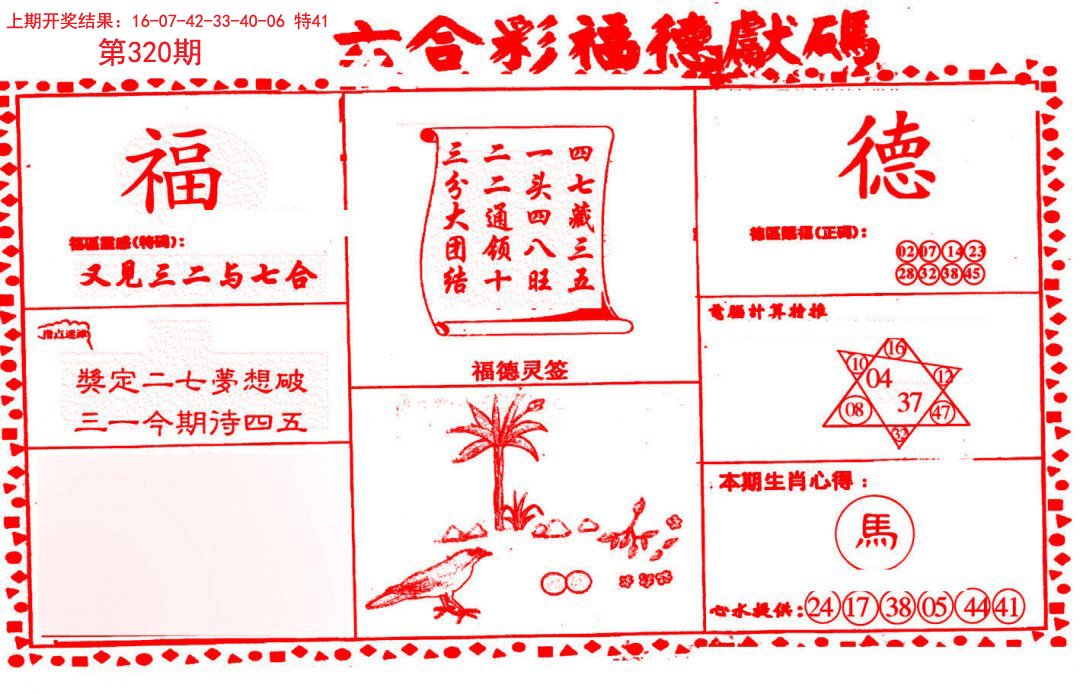 上期开奖结果: 16-07-42-33-40-06 特41
第320期
六合彩福德獻碼
福
福區靈感(特碼):
又見三二与七合
指点迷津
獎定二七夢想破
三一今期待四五
四七藏三五
一头四八旺
二二通领十
三分大团结
福德灵签
德
德區賜福(正碼):
02 07 14 23
28 32 38 45
電腦計算特推
16
10 12
04
37
08 47
32
本期生肖心得:
馬
心水提供: 24 17 38 05 44 41